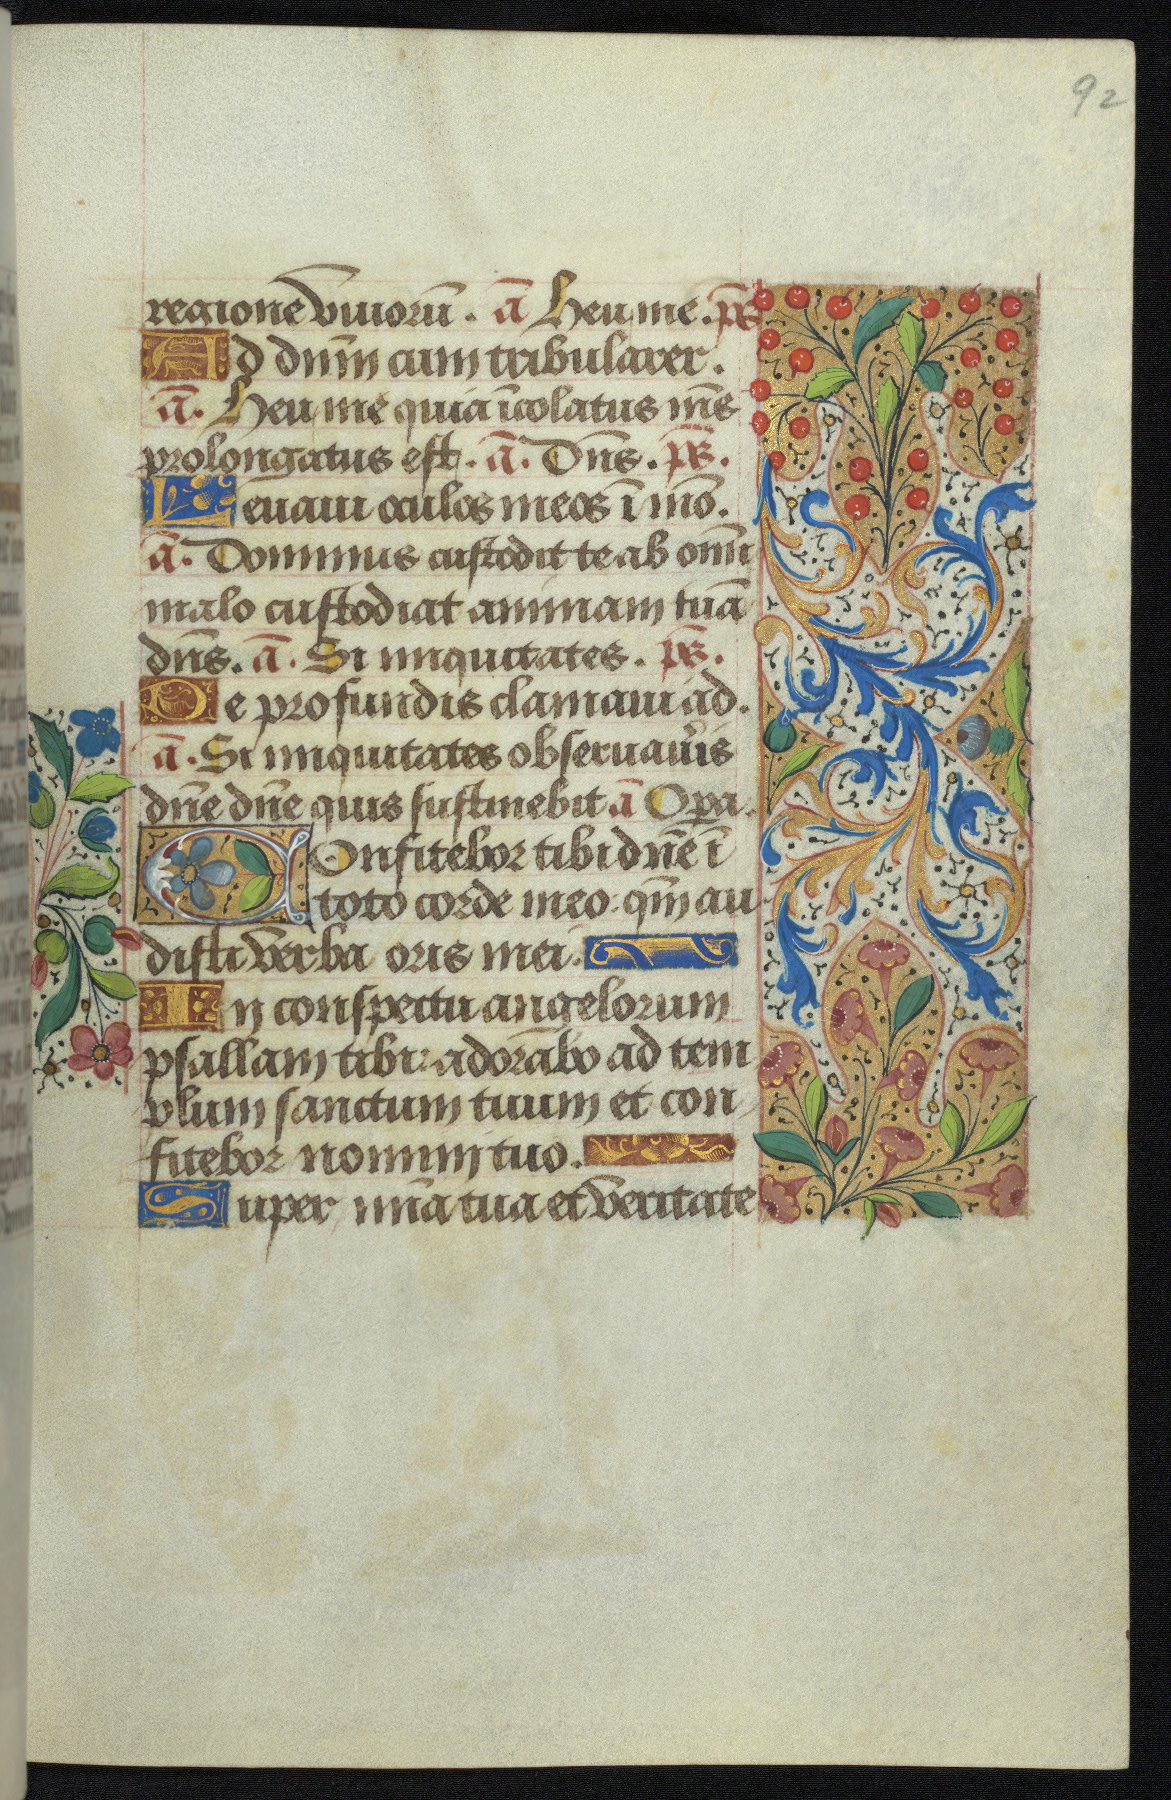 92
regione viuoru̅. a̅ Heu me. ps̅
Ad dn̅m cum tribularer.
a̅. Heu me quia i̅colatus me̅s
prolongatus est. a̅. Dn̅s. ps̅.
Leuaui oculos meos i̅ mo̅.
a̅. Dominus custodit te ab omni
malo custodiat animam tua̅
dn̅s. a̅. Si iniquitates. ps̅.
De profundis clamaui ad.
a̅. Si iniquitates obseruau̅is
dn̅e dn̅e quis sustinebit a̅ Opa.
Confitebor tibi dn̅e i̅
toto corde meo: qm̅ au
disti verba oris mei.
In conspectu angelorum
psallam tibi: adorabo ad tem
plum sanctum tuum et con
fitebor nomini tuo.
Super mi̅a tua et veritate